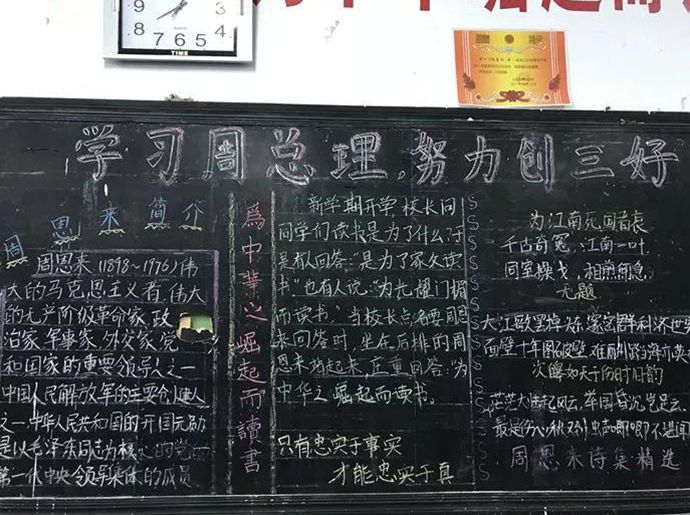 9 3
8 4
7 6 5
TIME
学习周总理,努力创三好
周恩来简介
周恩来(1898~1976)伟
大的马克思主义者"伟大
的无产阶级革命家,政
治家,军事家,外交家,党
和国家的重要领导人之一
中国人民解放军的主要创建人
之一中华人民共和国的开国元勋
是以毛泽东同志为核心的党的
第一代中央领导集体的成员
为中华之崛起而讀書
新学期开学校长问
同学们读书是为了什么?于
是有人回答:"是为了家父读
书"也有人说:"为光耀门楣
而读书"当校长点名要周恩
来回答时,坐在后排的周
恩来站起来,庄重回答:"为
中华之崛起而读书。
只有忠实于事实
才能忠实于真
为江南死国者哀
千古奇冤,江南一叶
同室操戈,相煎何急
无题
大江歌罢掉头东邃密群科济世穷
面壁十年图破壁,难酬蹈海亦英
次皞如夫子伤时事旧韵
茫茫大陆起风云,举国昏沉岂足云
最是伤心秋又到虫声唧唧不堪闻
周恩来诗集精选